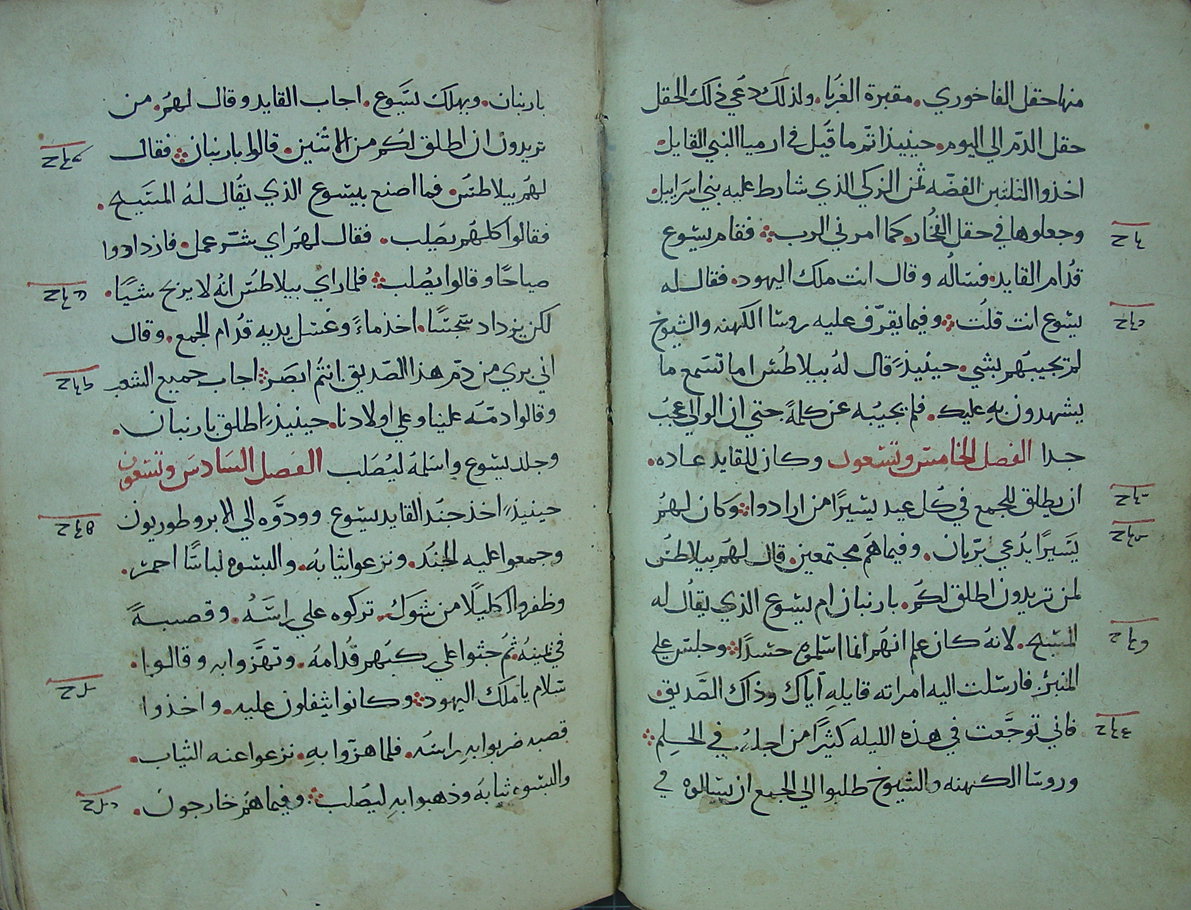 منها حقل الفاخوري. مقبرة الغربا. ولذلك دعي ذلك الحقل
حقل الدم الى اليوم. حينيذ اتم ما قيل في ارميا النبي القايل.
اخذوا الثلثين الفضه ثمن الزكي الذي شارط عليه بني اسراييل.
وجعلوها في حقل الفخار. كما امرني الرب فقام يسوع
قدام القايد. فساله وقال انت ملك اليهود. فقال له
يسوع انت قلت وفيما يقرف عليه روسا الكهنه والشيوخ
لم تجيبهم بشي. حينيذ قال له بيلاطس اما تسمع ما
يشهدون به عليك. فلم يجيبه عن كلمة حتي ان الوالي عجب
جدا الفصل الخامس وتسعون وكان للقايد عاده.
ان يطلق للجمع في كل عيد يسيرا من ارادوا وكان لهم
يسيرا يدعي بربان. وفيما هم مجتمعين. قال لهم بيلاطس
لمن تريدون اطلق لكم. بارنبان ام يسوع الذي يقال له
المسيح. لانه كان علم انهم انما اسلموه حسدا وجلس علي
المنبر. فارسلت اليه امراته قايله اياك وذاك الصديق.
فاني توجعت في هذه الليله كثيرا من اجله في الحلم
وروسا الكهنه والشيوخ طلبوا الي الجميع ان يسالوه في
بارنبان. ويهلك يسوع. اجاب القايد وقال لهم. من
تريدون ان اطلق لكم من الاثنين. قالوا بارنبان فقال
لهم بيلاطس. فما اصنع بيسوع الذي يقال له المسيح.
فقالوا كلهم يصلب. فقال لهم اي شر عمل. فازدادوا
صياحا وقالوا يصلب فلما راي بيلاطس انه لا يربح شيا.
لكن يزداد سجسا. اخذ ماء وغسل يديه قدام الجمع. وقال
اني بري من دم هذا الصديق انتم ابصر اجاب جميع الشعب
وقالوا دمه علينا وعلي اولادنا. حينيذ اطلق بارنبان.
وجلد يسوع واسلمه ليصلب الفصل السادس وتسعون
حينيذ اخذ جند القايد يسوع وودوه الي الابروطوريون
وجمعوا عليه الجند. ونزعوا ثيابه. والبسوه لباسا احمر.
وظفروا اكليلا من شوك. تركوه علي راسه. وقصبة
في يمينه. ثم حثوا علي ركبهم قدامه. وتهزوا به وقالوا.
سلام يا ملك اليهود وكانوا يثفلون عليه. واخذوا
قصبه ضربوا به راسه. فلما هزوا به. نزعوا عنه الثياب.
والبسوه ثيابه وذهبوا به ليصلب وفيما هم خارجون.